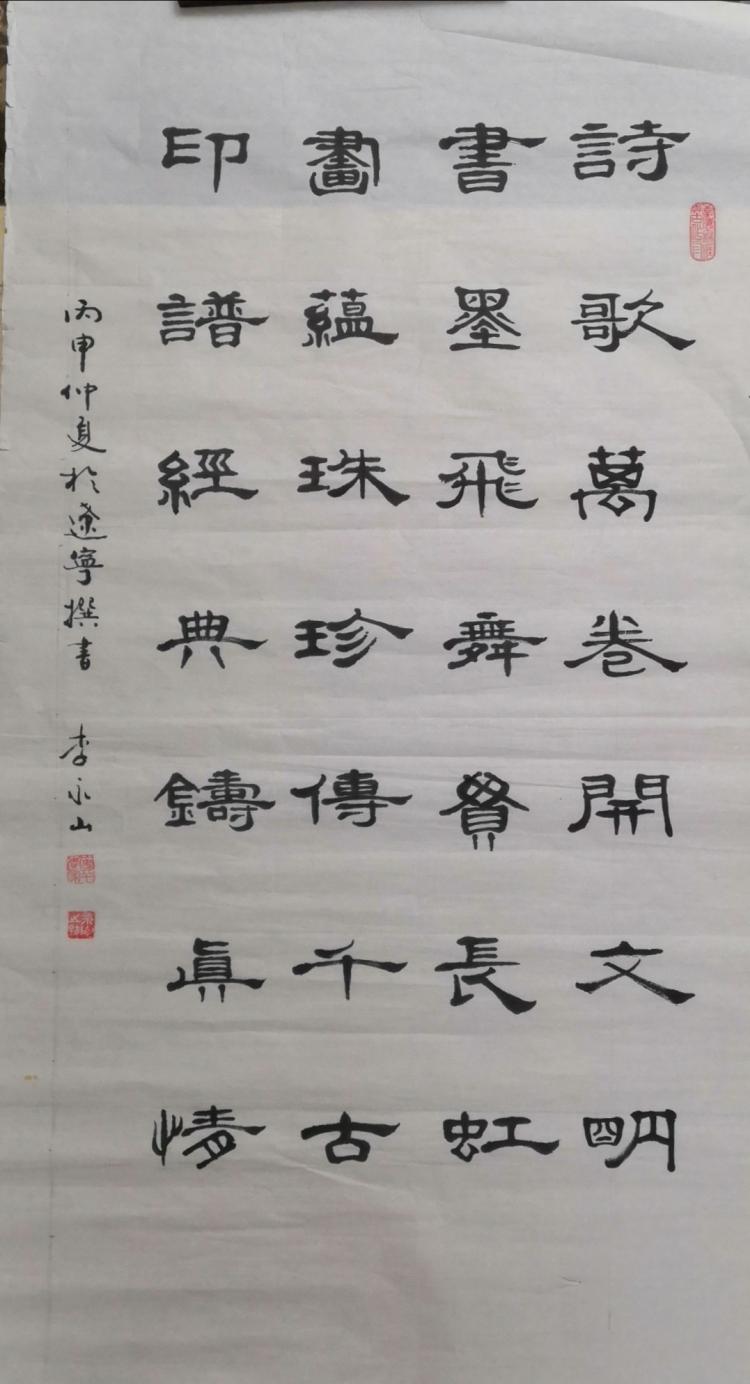 詩歌萬卷開文明
書墨飛舞貫長虹
畫蘊珠珍傳千古
印譜經典鑄真情
丙申仲夏於遼寧撰書 李永山